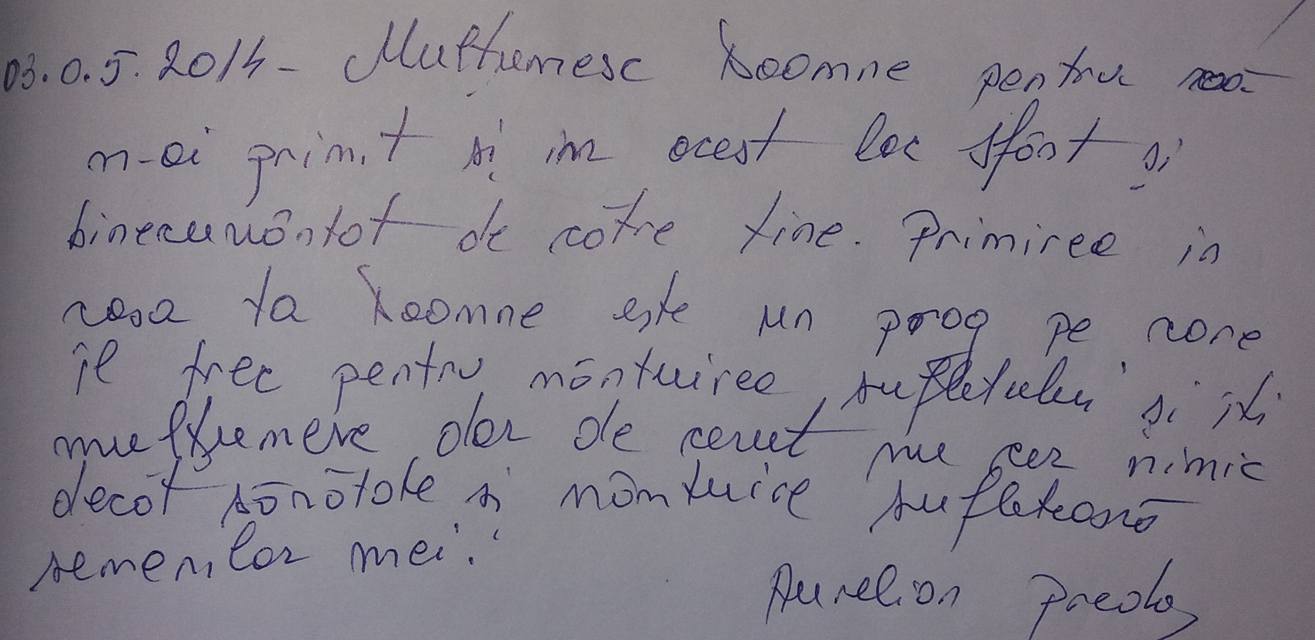 03.0.5.2014 - Mulțumesc Doamne pentru că
m-ai primit și in acest loc sfânt și
binecuvântat de către tine. Primirea in
casa ta Doamne este un prag pe care
îl trec pentru mântuirea sufletului și îți
mulțumesc, dar de cerut nu cer nimic
decât sănătate și mântuire sufletească
semenilor mei.
Aurelian Preda